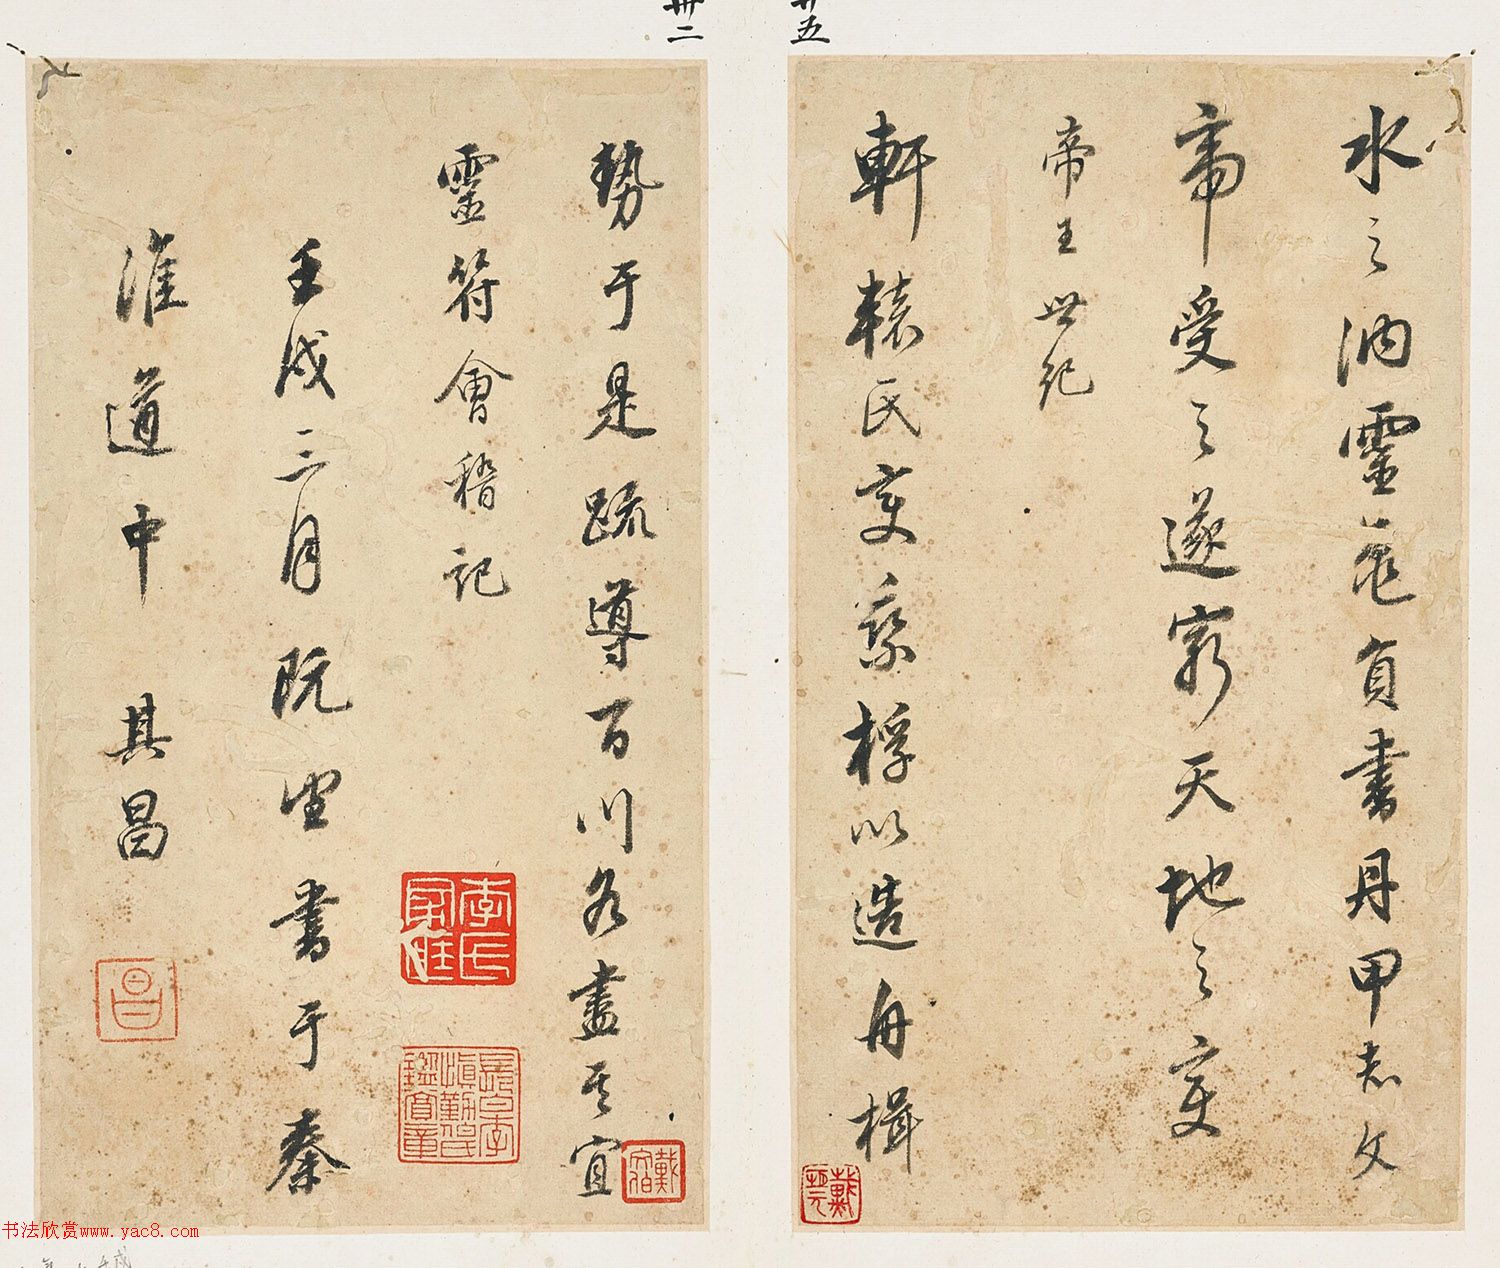 廿五
水之汭靈龜負書丹甲青文
帝受之遂窮天地之變
帝王世紀
軒轅氏變乘桴以造舟楫
卅二
勢于是疏導百川各盡其宜
靈符會稽記
壬戌三月既望書于秦
淮道中 其昌
昌
书法欣赏www.yac8.com